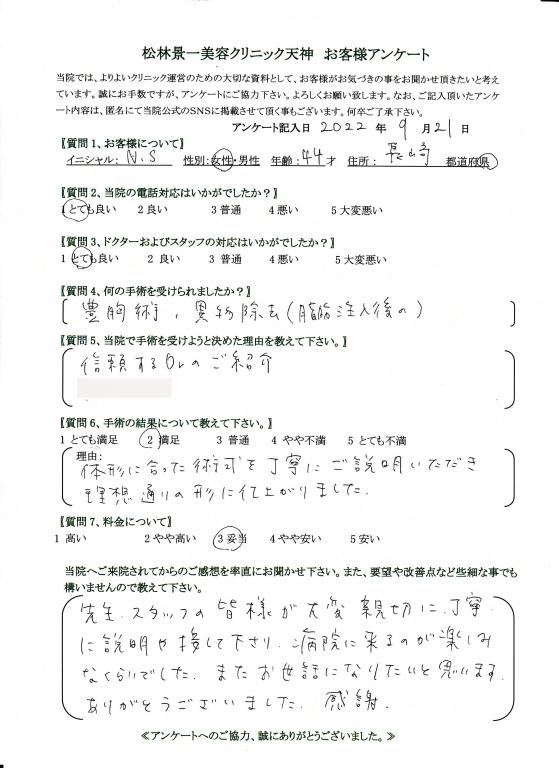 松林景一美容クリニック天神　お客様アンケート
当院では、よりよいクリニック運営のための大切な資料として、お客様がお気づきの事をお聞かせ頂きたいと考え
ています。誠にお手数ですが、アンケートにご協力下さい。よろしくお願い致します。なお、ご記入頂いたアンケ
ート内容は、匿名にて当院公式のSNSに掲載させて頂く事もございます。何卒ご了承下さい。
アンケート記入日 2022 年 9 月 21 日
【質問1、お客様について】
イニシャル：N.S　性別：女性・男性　年齢：44才　住所：長崎　都道府県
【質問2、当院の電話対応はいかがでしたか？】
1 とても良い　2 良い　3 普通　4 悪い　5 大変悪い
【質問3、ドクターおよびスタッフの対応はいかがでしたか？】
1 とても良い　2 良い　3 普通　4 悪い　5 大変悪い
【質問4、何の手術を受けられましたか？】
豊胸術，異物除去(脂肪注入後の)
【質問5、当院で手術を受けようと決めた理由を教えて下さい。】
信頼するDrのご紹介
【質問6、手術の結果について教えて下さい。】
1 とても満足　2 満足　3 普通　4 やや不満　5 とても不満
理由：
体形に合った術式を丁寧にご説明いただき
理想通りの形に仕上がりました.
【質問7、料金について】
1 高い　2 やや高い　3 妥当　4 やや安い　5 安い
当院へご来院されてからのご感想を率直にお聞かせ下さい。また、要望や改善点など些細な事でも
構いませんので教えて下さい。
先生.スタッフの皆様が大変親切に.丁寧
に説明や接して下さり.病院に来るのが楽しみ
なくらいでした.またお世話になりたいと思います.
ありがとうございました.感謝.
≪アンケートへのご協力、誠にありがとうございました。≫